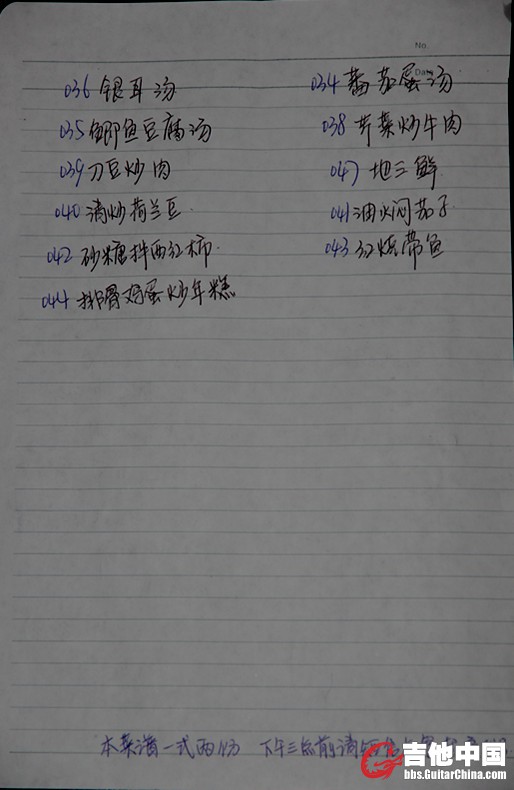 No.
Date
036 银耳汤 034 蕃茄蛋汤
035 鲫鱼豆腐汤 038 芹菜炒牛肉
039 刀豆炒肉 047 地三鲜
040 清炒荷兰豆 041 油焖茄子
042 砂糖拌西红柿 043 红烧带鱼
044 排骨鸡蛋炒年糕
本菜谱一式两份 下午三点前请
吉他中国
bbs.GuitarChina.com